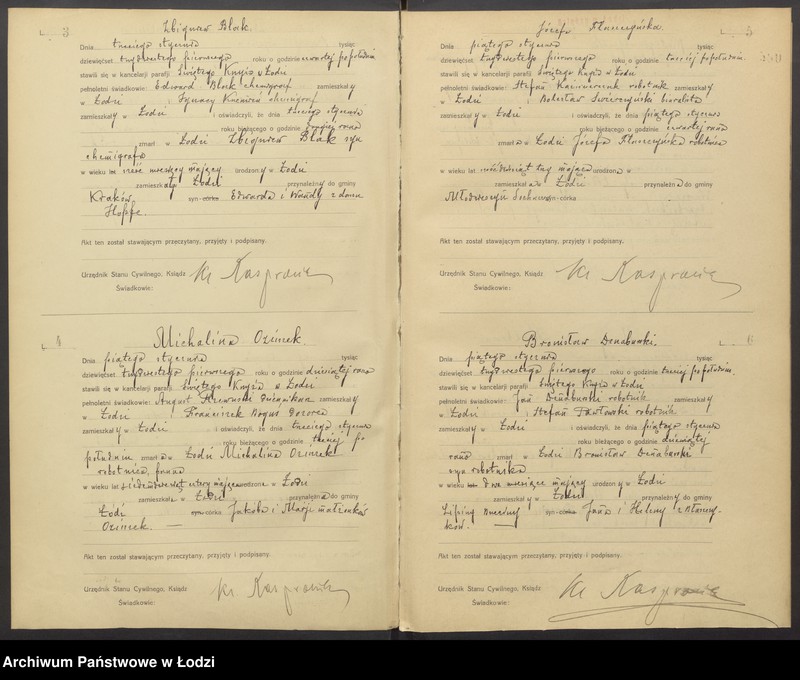 L. 3
Zbigniew Blak.
Dnia trzeciego stycznia tysiąc
dziewięćset dwudziestego pierwszego roku o godzinie czwartej po południu
stawili się w kancelarji parafji Świętego Krzyża w Łodzi
pełnoletni świadkowie: Edward Blak chemigraf zamieszkały
w Łodzi i Ignacy chemigraf
zamieszkały w Łodzi i oświadczyli, że dnia trzeciego stycznia
roku bieżącego o godzinie drugiej rano
zmarł w Łodzi Zbigniew Blak syn
chemigrafa
w wieku lat miesięcy mający urodzony w Łodzi
zamieszkały Łodzi przynależny do gminy
Kraków syn-córka Edwarda i Wandy z domu
Hoppe.
Akt ten został stawającym przeczytany, przyjęty i podpisany.
Urzędnik Stanu Cywilnego, Ksiądz Ks
Świadkowie:
L. 4
Michalina Ozimek.
Dnia piątego stycznia tysiąc
dziewięćset dwudziestego pierwszego roku o godzinie dziewiątej rano
stawili się w kancelarji parafji Świętego Krzyża w Łodzi
pełnoletni świadkowie: August zamieszkały
w Łodzi i Franciszek dozorca
zamieszkały w Łodzi i oświadczyli, że dnia trzeciego stycznia
roku bieżącego o godzinie trzeciej po
południu zmarła w Łodzi Michalina Ozimek
robotnica, panna
w wieku lat mająca urodzona w Łodzi
zamieszkała w Łodzi przynależna do gminy
Łódź syn-córka Jakóba i Marji małżonków
Ozimek.
Akt ten został stawającym przeczytany, przyjęty i podpisany.
Urzędnik Stanu Cywilnego, Ksiądz Ks
Świadkowie:
L. 5
Józefa
Dnia piątego stycznia tysiąc
dziewięćset dwudziestego pierwszego roku o godzinie trzeciej popołudniu.
stawili się w kancelarji parafji Świętego Krzyża w Łodzi
pełnoletni świadkowie: Stefan Kazimierczak robotnik zamieszkały
w Łodzi i Bolesław
zamieszkały w Łodzi i oświadczyli, że dnia piątego stycznia
roku bieżącego o godzinie czwartej rano
zmarła w Łodzi Józefa robotnica
w wieku lat mająca urodzona w
zamieszkała w Łodzi przynależna do gminy
syn-córka
Akt ten został stawającym przeczytany, przyjęty i podpisany.
Urzędnik Stanu Cywilnego, Ksiądz Ks
Świadkowie:
L. 6
Bronisław Denaburski.
Dnia piątego stycznia tysiąc
dziewięćset dwudziestego pierwszego roku o godzinie trzeciej po południu.
stawili się w kancelarji parafji Świętego Krzyża w Łodzi
pełnoletni świadkowie: Jan Denaburski robotnik zamieszkały
w Łodzi i Stefan Pawłowski robotnik
zamieszkały w Łodzi i oświadczyli, że dnia piątego stycznia
roku bieżącego o godzinie dziewiątej
rano zmarł w Łodzi Bronisław Denaburski
syn robotnika
w wieku lat dwa miesiące mający urodzony w Łodzi
zamieszkały w Łodzi przynależny do gminy
syn-córka Jana i Heleny z
Akt ten został stawającym przeczytany, przyjęty i podpisany.
Urzędnik Stanu Cywilnego, Ksiądz Ks
Świadkowie:
Archiwum Państwowe w Łodzi